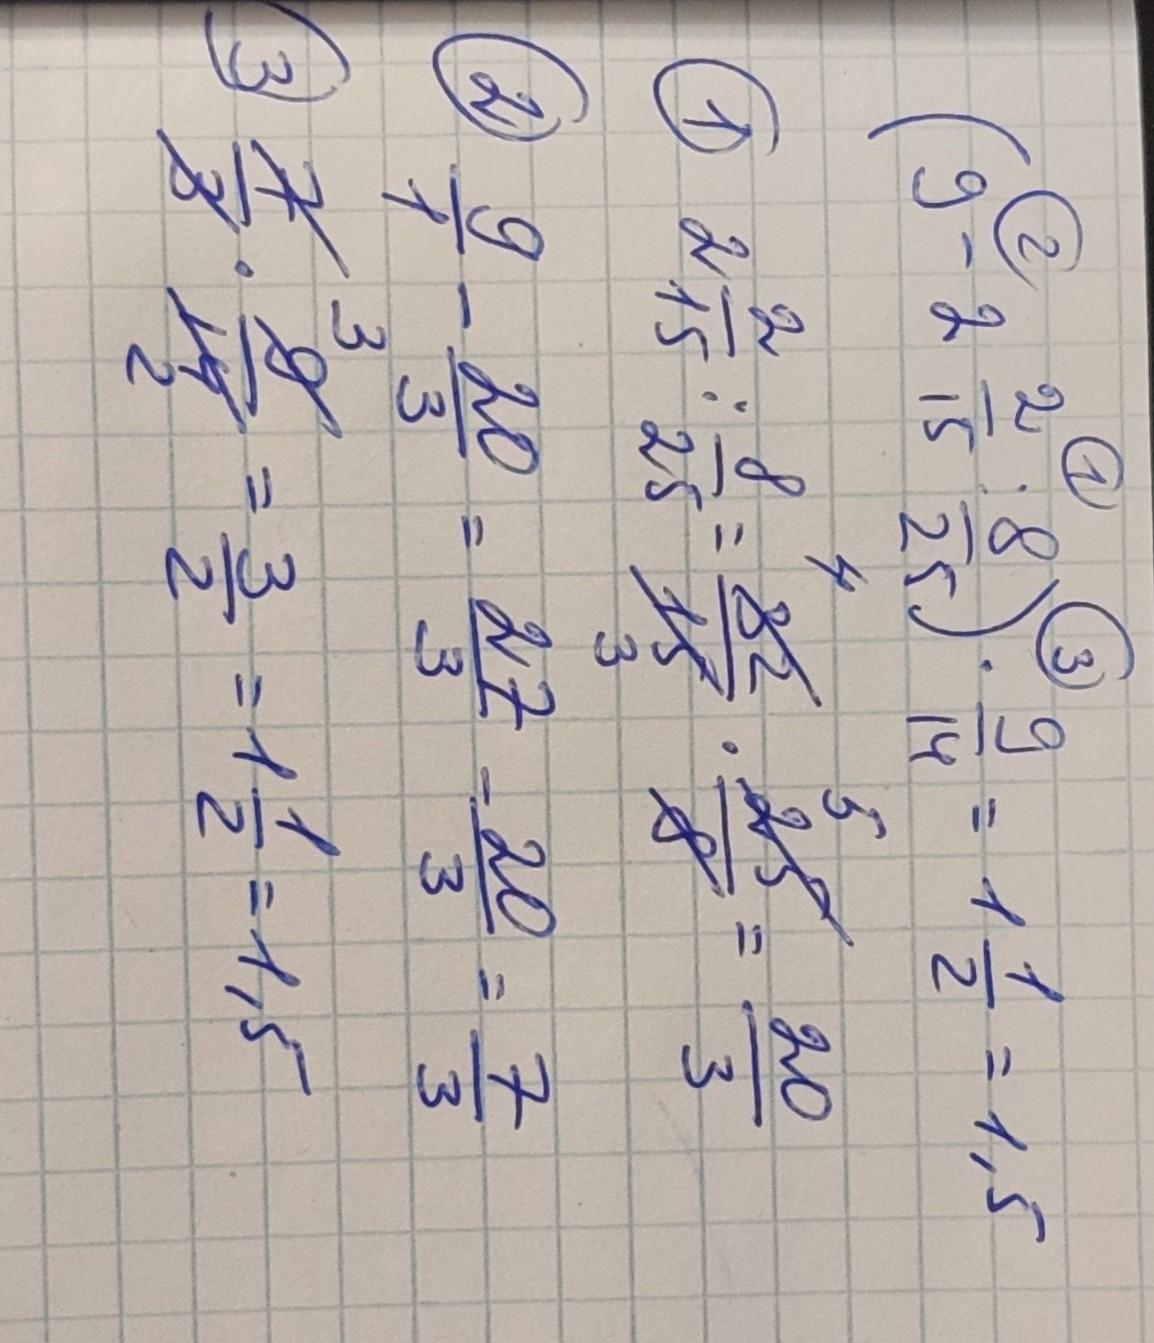 (9 - 2 2/15 : 8/25) · 9/14 = 1 1/2 = 1,5
② ① ③
① 2 2/15 : 8/25 = 32/15 · 25/8 = 20/3
4 5
3
② 9/1 - 20/3 = 27/3 - 20/3 = 7/3
③ 7/3 · 9/14 = 3/2 = 1 1/2 = 1,5
3
2